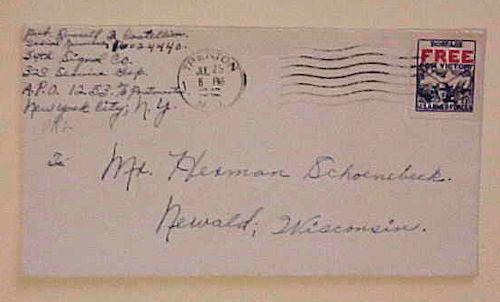 Pvt. Russell A. Castellion
Serial Number 16024440.
54th Signal Co.
328 Service Grp.
A.P.O. 1253 % Postmaster
New York City, N.Y.
TRENTON
JUL 25
6 PM
N.J.
POSTAGE
FREE
FOR VICTORY
U.S. ARMED FORCES
To
Mr. Herman Schoenebeck.
Newald, Wisconsin.